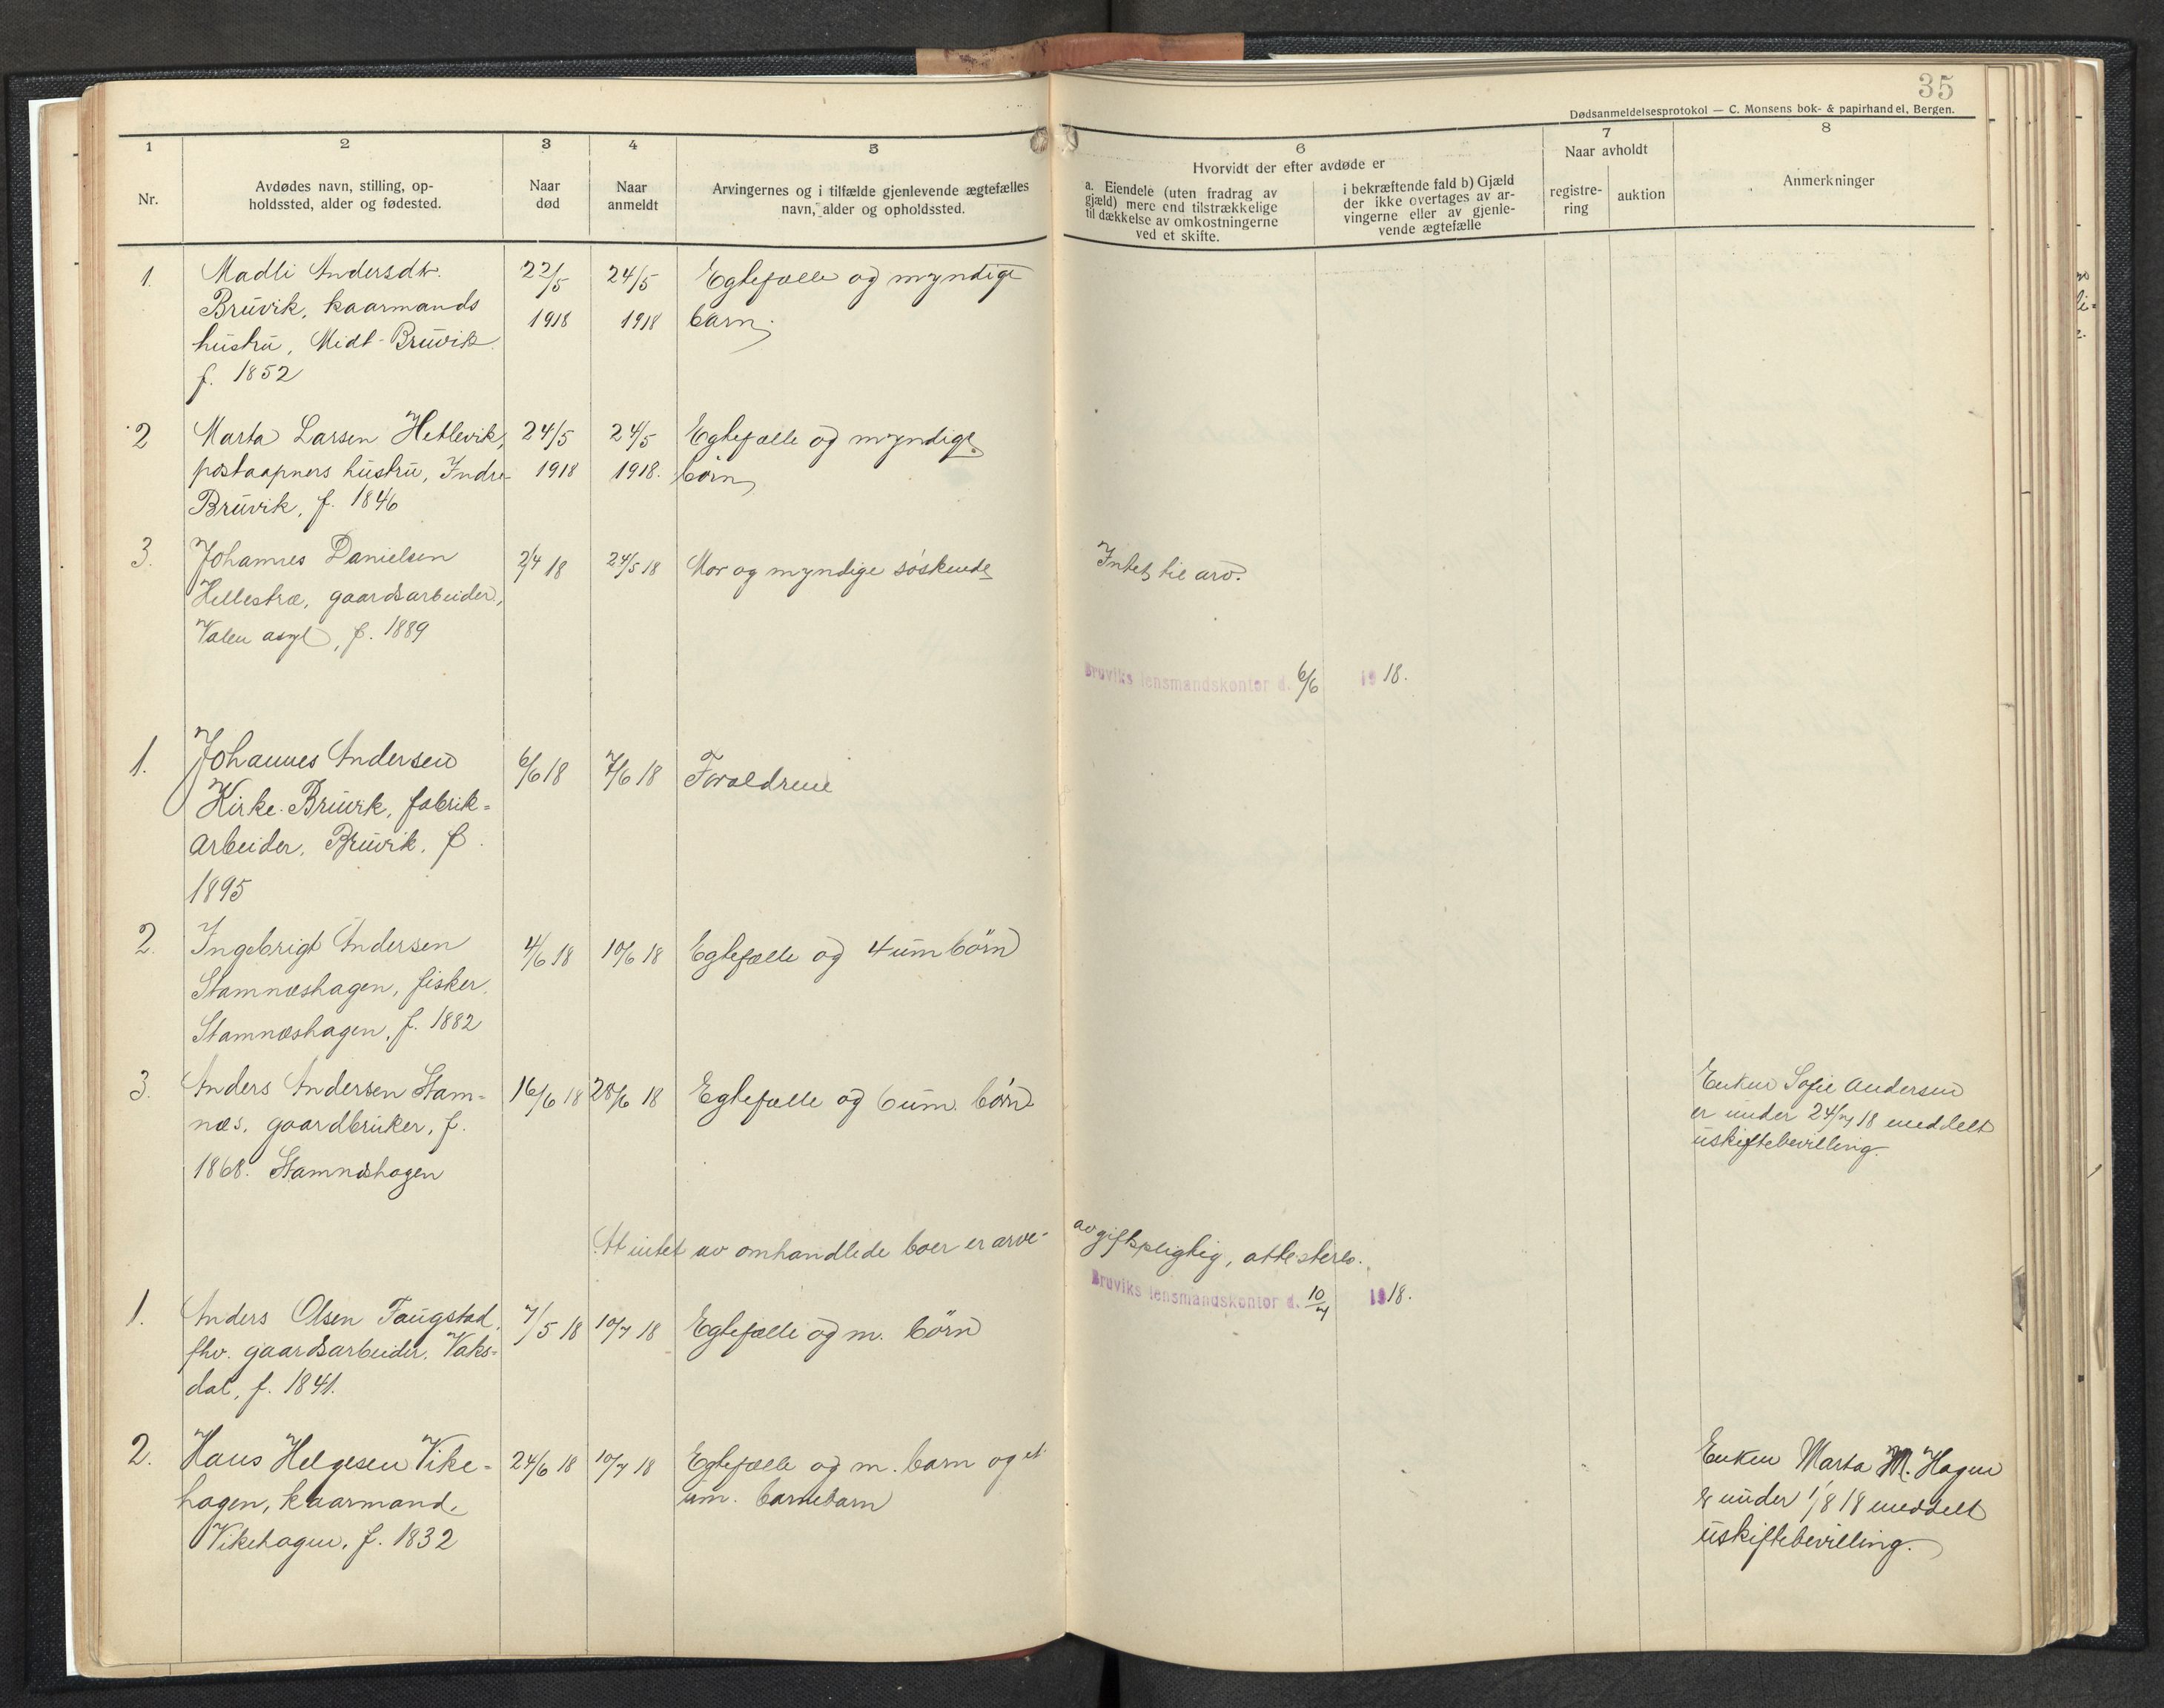 35
Dødsanmeldelsesprotokol — C. Monsens bok- & papirhandel, Bergen.
1 2 3 4 5 6 7 8
Nr.
Avdødes navn, stilling, op-
holdssted, alder og fødested.
Naar
død
Naar
anmeldt
Arvingernes og i tilfælde gjenlevende ægtefælles
navn, alder og opholdssted.
Hvorvidt der efter avdøde er
a. Eiendele (uten fradrag av
gjæld) mere end tilstrækkelige
til dækkelse av omkostningerne
ved et skifte.
i bekræftende fald b) Gjæld
der ikke overtages av ar-
vingerne eller av gjenle-
vende ægtefælle
Naar avholdt
registre-
ring
auktion
Anmerkninger
1. Madli Andersdtr. 22/5 24/5 Egtefælle og myndige
Bruvik, kaarmands 1918 1918 barn.
hustru, Midt-Bruvik
f. 1852
2 Marta Larsen Hetlevik, 24/5 24/5 Egtefælle og myndige
postaapners hustru, Indre 1918 1918. børn
Bruvik, f. 1846
3. Johannes Danielsen 2/4 18 24/5 18 Mor og myndige søskende Intet til arv.
Hellestræ, gaardsarbeider,
Valen asyl, f. 1889
Bruviks lensmandskontor d. 6/6 1918.
1. Johannes Andersen 6/6 18 7/6 18 Forældrene
Kirke-Bruvik, fabrik-
arbeider, Bruvik, f.
1895
2. Ingebrigt Andersen 4/6 18 10/6 18 Egtefælle og 4 um børn
Stamnæshagen, fisker.
Stamnæshagen, f. 1882
3. Anders Andersen Stam- 16/6 18 28/6 18 Egtefælle og 6 um. børn
næs, gaardbruker, f.
1868. Stamnæshagen
Enken Sofie Andersen
er under 24/7 18 meddelt
uskiftebevilling.
At intet av omhandlede boer er arve- avgiftspligtig, attesteres.
Bruviks lensmandskontor d. 10/7 1918.
1. Anders Olsen Faugstad, 7/5 18 10/7 18 Egtefælle og m. børn
fhv. gaardsarbeider. Vaks-
dal, f. 1841.
2. Hans Helgesen Vike- 24/6 18 10/7 18 Egtefælle og m. barn og et
hagen, kaarmand, um. barnebarn
Vikehagen, f. 1832
Enken Marta M. Hagen
er under 1/8 18 meddelt
uskiftebevilling.